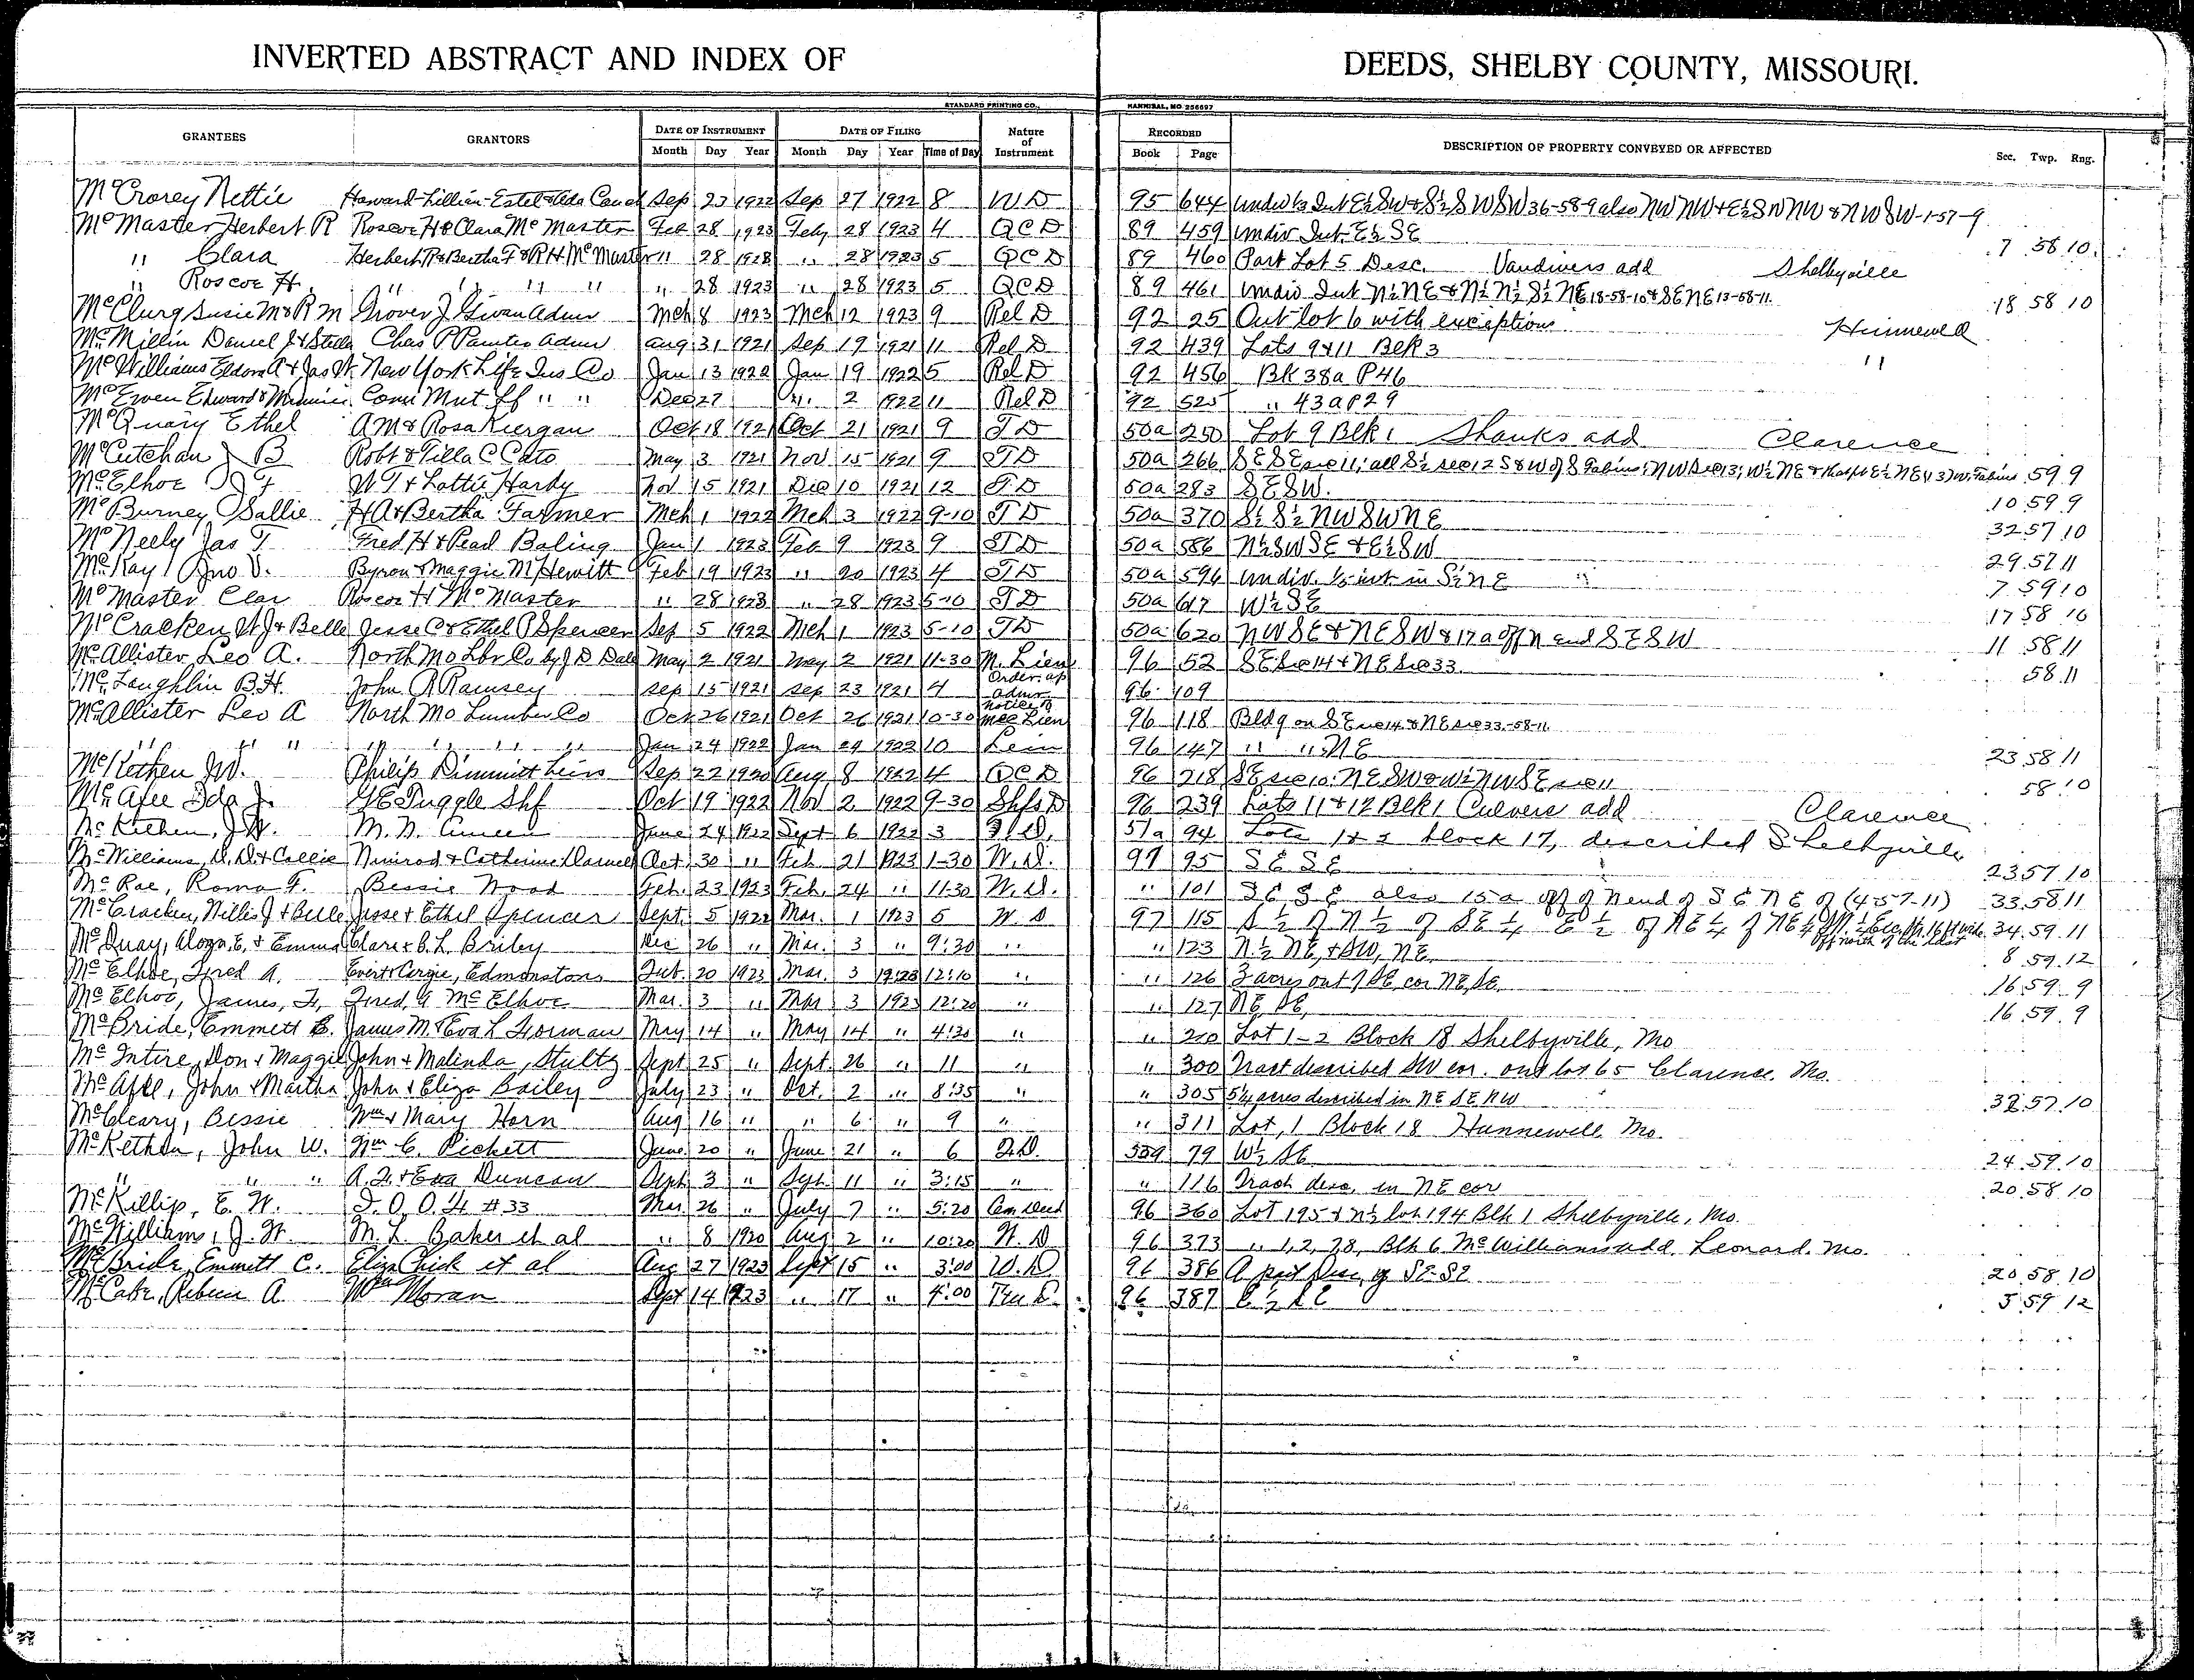 INVERTED ABSTRACT AND INDEX OF DEEDS, SHELBY COUNTY, MISSOURI.
STANDARD PRINTING CO., HANNIBAL, MO 256697
GRANTEES GRANTORS DATE OF INSTRUMENT DATE OF FILING Nature of Instrument RECORDED DESCRIPTION OF PROPERTY CONVEYED OR AFFECTED Sec. Twp. Rng.
Month Day Year Month Day Year Time of Day Book Page
McCrorey Nettie Howard-Lillian-Estel & Ada Sep 23 1922 Sep 27 1922 8 WD 95 644 E½SW & S½SWSW 36-58-9 also NWNW + E½SWNW & NWSW-1-57-9
McMaster Herbert R Roscoe H & Clara McMaster Feb 28 1923 Feby 28 1923 4 QCD 89 459 Undiv Int E½SE 7 58 10
" Clara Herbert R & Bertha F & R H McMaster " 28 " 28 1923 5 QCD 89 460 Part Lot 5 Desc. Vandivers add Shelbyville
" Roscoe H. " " " " 28 1923 " 28 1923 5 QCD 89 461 Undiv Int N½NE & N½N½S½NE 18-58-10 & SENE 13-58-11 18 58 10
McClurg Susie M & R M Grover J Givan Adm Mch 8 1923 Mch 12 1923 9 Rel D 92 25 Out lot 6 with exceptions Hunnewell
McMillin Daniel J & Stella Chas P Painter adm Aug 31 1921 Sep 19 1921 11 Rel D 92 439 Lots 9 & 11 Blk 3 "
McWilliams Eldora A & Jas W New York Life Ins Co Jan 13 1922 Jan 19 1922 5 Rel D 92 456 Bk 38a P46
McEwen Edward & Minnie Conn Mut Lf " " Dec 27 2 1922 11 Rel D 92 525 " 43a P29
McQuary Ethel AM & Rosa Kiergan Oct 18 1921 Oct 21 1921 9 TD 50a 250 Lot 9 Blk 1 Shanks add Clarence
McCutchan J B Robt & Tilla C Cato May 3 1921 Nov 15 1921 9 TD 50a 266 SESE sec 11; all S½ sec 12 S & W of S Fabius; NW Sec 13; W½NE 59 9
McElhoe J F W T & Lottie Hardy Nov 15 1921 Dec 10 1921 12 TD 50a 283 SESW. 10 59 9
McBurney Sallie HA & Bertha Farmer Mch 1 1922 Mch 3 1922 9-10 TD 50a 370 S½S½NWSWNE 32 57 10
McNeely Jas T Fred H & Pearl Baling Jan 1 1923 Feb 9 1923 9 TD 50a 586 N½SWSE & E½SW 29 57 11
McKay Jno V. Byron & Maggie M Hewitt Feb 19 1923 " 20 1923 4 TD 50a 596 Undiv. ⅕ int in S½NE 7 59 10
McMaster Clar Roscoe H McMaster " 28 1923 " 28 1923 5-10 TD 50a 617 W½SE 17 58 10
McCracken W J & Belle Jesse C & Ethel P Spencer Sep 5 1922 Mch 1 1923 5-10 TD 50a 620 NWSE & NESW & 17a off N end SESW 11 58 11
McAllister Leo A. North Mo Lbr Co by J D Dale May 2 1921 May 2 1921 11-30 M. Lien 96 52 SE Sec 14 & NE Sec 33. 58 11
McLaughlin B.H. John R Ramsey Sep 15 1921 Sep 23 1921 4 Order ap admr 96 109
McAllister Leo A North Mo Lumber Co Oct 26 1921 Oct 26 1921 10-30 Notice of Mec Lien 96 118 Bldg on SE sec 14 & NE sec 33-58-11
" " " " " " " Jan 24 1922 Jan 24 1922 10 Lein 96 147 " " NE 23 58 11
McKethen J W. Philip Dimmitt heirs Sep 22 1920 Aug 8 1922 4 QCD 96 218 SE sec 10; NESW & W½NWSE sec 11 58 10
McAfee Ida J. G E Tuggle Shf Oct 19 1922 Nov 2 1922 9-30 Shfs D 96 239 Lots 11 & 12 Blk 1 Culvers add Clarence
McKethen, J.W. M. D. June 24 1922 Sept 6 1922 3 51a 94 Lots 1 & 2 block 17, described Shelbyville
McWilliams, D. D. & Callie Nimrod & Catherine Oct. 30 " Feb 21 1923 1-30 W.D. 97 95 SESE 23 57 10
McRae, Roma F. Bessie Wood Feb. 23 1923 Feb. 24 " 11-30 W.D. " 101 SESE also 15a off of N end of SENE of (4-57-11) 33 58 11
McCracken, Willis J & Belle Jesse & Ethel Spencer Sept. 5 1922 Mar. 1 1923 5 W.D 97 115 S½ of N½ of SE¼ E½ of NE¼ of NE¼ off north of the last 34 59 11
McQuay, Alonzo E. & Emma Clara & C. L. Briley Dec 26 " Mar. 3 " 9:30 " " 123 N½NE, & SW, NE. 8 59 12
McElhoe, Fred A. Evert & Cergie, Edmonstons Feb. 20 1923 Mar. 3 1923 12:10 " " 126 3 acres out of SE cor NE, SE. 16 59 9
McElhoe, James, F, Fred, A McElhoe Mar. 3 " Mar 3 1923 12:20 " " 127 NE, SE, 16 59 9
McBride, Emmett C. James M. & Eva L Gorman May 14 " May 14 " 4:30 " " 210 Lot 1-2 Block 18 Shelbyville, Mo
McIntire, Don & Maggie John & Malinda, Stultz Sept 25 " Sept. 26 " 11 " " 300 Tract described SW cor. out lot 65 Clarence, Mo.
McAfee, John & Martha John & Eliza Bailey July 23 " Oct. 2 " 8:35 " " 305 5¼ acres described in NE SE NW 32 57 10
McCleary, Bessie Wm & Mary Horn Aug 16 " " 6 " 9 " " 311 Lot, 1 Block 18 Hunnewell, Mo.
McKethen, John W. Wm C. Pickett June 20 " June 21 " 6 79 W½ SE 24 59 10
" " " A. & Eva Duncan Sept 3 " Sept 11 " 3:15 " " 116 Tract desc, in NE cor 20 58 10
McKillip, E. W. I. O. O. F. #33 Mar 26 " July 7 " 5:20 Cem Deed 96 360 Lot 195 & N½ lot 194 Blk 1 Shelbyville, Mo.
McWilliams, J. W. M. L. Baker et al " 8 1920 Aug 2 " 10:20 W. D 96 373 " 1,2,7,8, Blk 6 McWilliams add. Leonard. Mo.
McBride, Emmett C. Eliza Chick et al Aug 27 1923 Sept 15 " 3:00 W.D. 96 386 A part Desc, of SE-SE 20 58 10
McCabe, Rebecca A Wm Moran Sept 14 1923 " 17 " 4:00 96 387 E½ SE 5 59 12